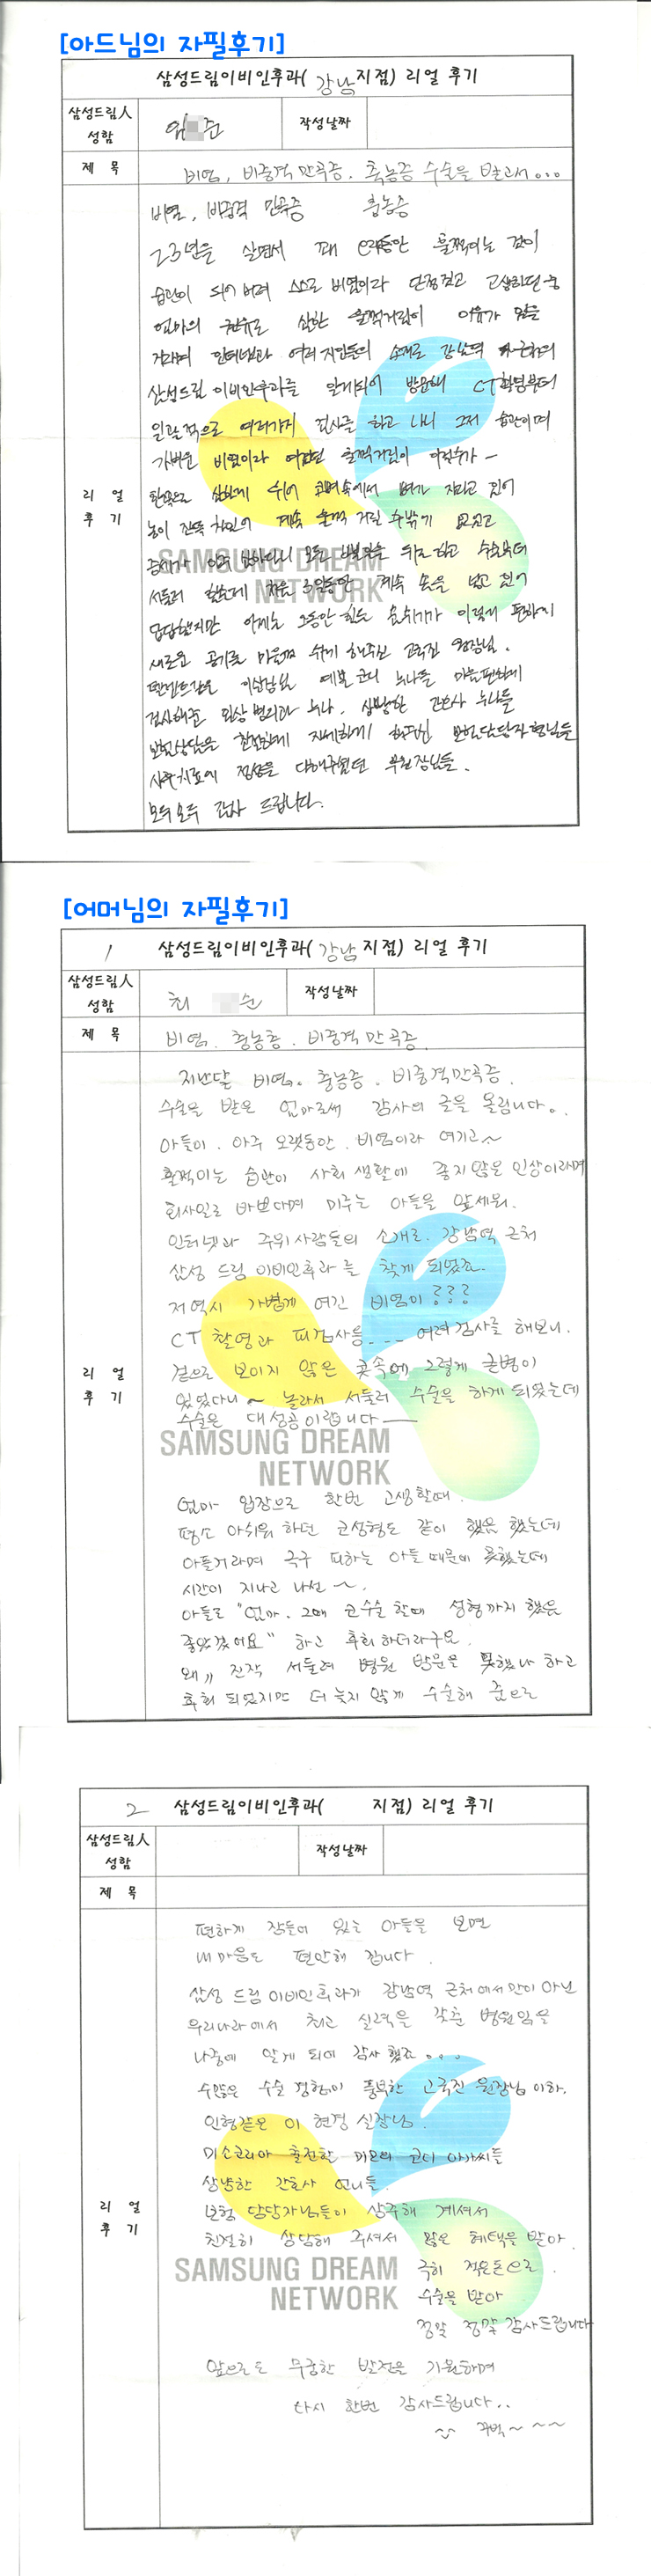 [아드님의 자필후기]
삼성드림이비인후과( 강남 지점) 리얼 후기
삼성드림人 성함
임 준
작성날짜
제 목
비염, 비중격 만곡증, 축농증 수술을 받고서...
리 얼 후 기
비염, 비중격 만곡증 축농증
23년을 살면서 꽤 오랫동안 훌쩍이는 것이
습관이 되어 버려 스스로 비염이라 단정짓고 고생하던 중
엄마의 권유로 심한 훌쩍거림이 이유가 있을
거라며 인터넷과 여러 지인들의 소개로 강남역 근처의
삼성드림 이비인후과를 알게되어 방문해 CT촬영부터
일괄적으로 여러가지 검사를 하고 나니 그저 습관이며
가벼운 비염이라 여겼던 훌쩍거림이 어릴수가 ~
한쪽으로 심하게 휘어 코뼈속에서 뼈가 자라고 있어
농이 잔뜩 차있어 계속 훌쩍 거릴 수밖에 없었고
모든 뒤로 하고 수술부터
서둘러 했는데 처음 3일동안 계속 솜을 넣고 있어
답답했지만 이제는 그동안 힘든 숨쉬기가 이렇게 편하게
새로운 공기를 마음껏 쉬게 해주신 고국진 원장님.
이실장님 예쁜 코디 누나들 마음편하게
검사해준 임상병리과 누나, 상냥한 간호사 누나들
보험상담을 친절하게 자세하게 해주신 보험담당자 형님들
사후치료에 정성을 다해주셨던 부원장님들.
모두모두 감사 드립니다.
[어머님의 자필후기]
1 삼성드림이비인후과( 강남 지점) 리얼 후기
삼성드림人 성함
최 순
작성날짜
제 목
비염. 축농증. 비중격 만곡증.
리 얼 후 기
지난달 비염. 축농증. 비중격만곡증.
수술을 받은 엄마로써 감사의 글을 올립니다.
아들이. 아주 오랫동안. 비염이라 여기고~
훌쩍이는 습관이 사회 생활에 좋지않은 인상이라며
회사일로 바쁘다며 미루는 아들을 앞세워.
인터넷과 주위사람들의 소개로. 강남역 근처
삼성 드림 이비인후과를 찾게 되었죠.
저역시 가볍게 여긴 비염이 ???
CT 촬영과 피검사등 --- 여러검사를 해보니.
겉으로 보이지 않은 콧속에 그렇게 큰병이
있었다니~ 놀라서 서둘러 수술을 하게 되었는데
수술은 대성공이랍니다 ―
SAMSUNG DREAM
NETWORK
엄마 입장으로 한번 고생할때.
평소 아쉬워 하던 코성형도 같이 했음 했는데
아플거라며 극구 피하는 아들 때문에 못했는데
시간이 지나고 나선 ~.
아들도 "엄마. 그때 코수술 할때 성형까지 했음
좋았겠어요" 하고 후회하더라구요.
왜,, 진작 서둘러 병원 방문을 못했나 하고
후회 되었지만 더 늦지 않게 수술해 줌으로
2 삼성드림이비인후과( 지점) 리얼 후기
삼성드림人 성함
작성날짜
제 목
리 얼 후 기
편하게 잠들어 있는 아들을 보면
내 마음도 편안해 집니다.
삼성 드림 이비인후과가 강남역 근처에서만이 아닌
우리나라에서 최고 실력을 갖춘 병원임을
나중에 알게 되어 감사했죠...
수많은 수술 경험이 풍부한 고국진 원장님 이하.
인형같은 이 현정 실장님.
미스코리아 출전한 미모의 코디 아가씨들
상냥한 간호사 언니들.
보험 담당자님들이 상주해 계셔서
친절히 상담해 주셔서 많은 혜택을 받아
SAMSUNG DREAM
NETWORK
극히 적은돈으로.
수술을 받아
정말 정말 감사드립니다
앞으로도 무궁한 발전을 기원하며
다시 한번 감사드립니다..
꾸벅~ ~~